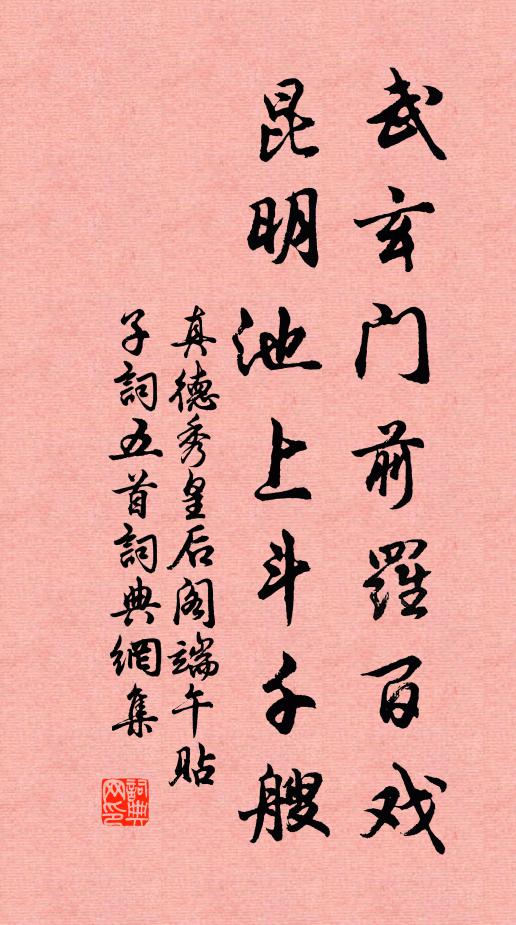 武玄门前羅百戏
昆明池上斗千艘
真德秀皇后阁端午贴
子詞五首詞典網集
詞典网印